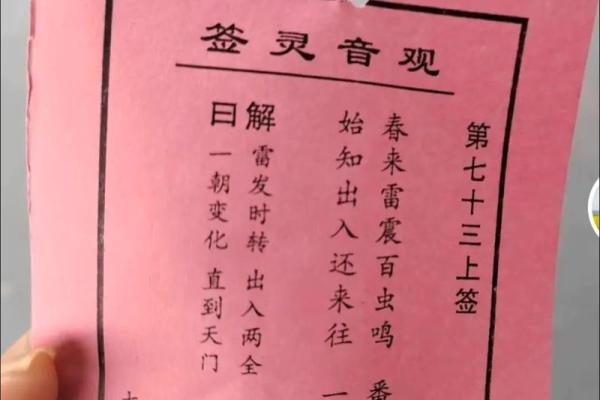 观音灵签
第七十三上签
春来雷震百虫鸣 番
始知出入还来往 一
解曰
雷发时转 出入两全
一朝变化 直到天门